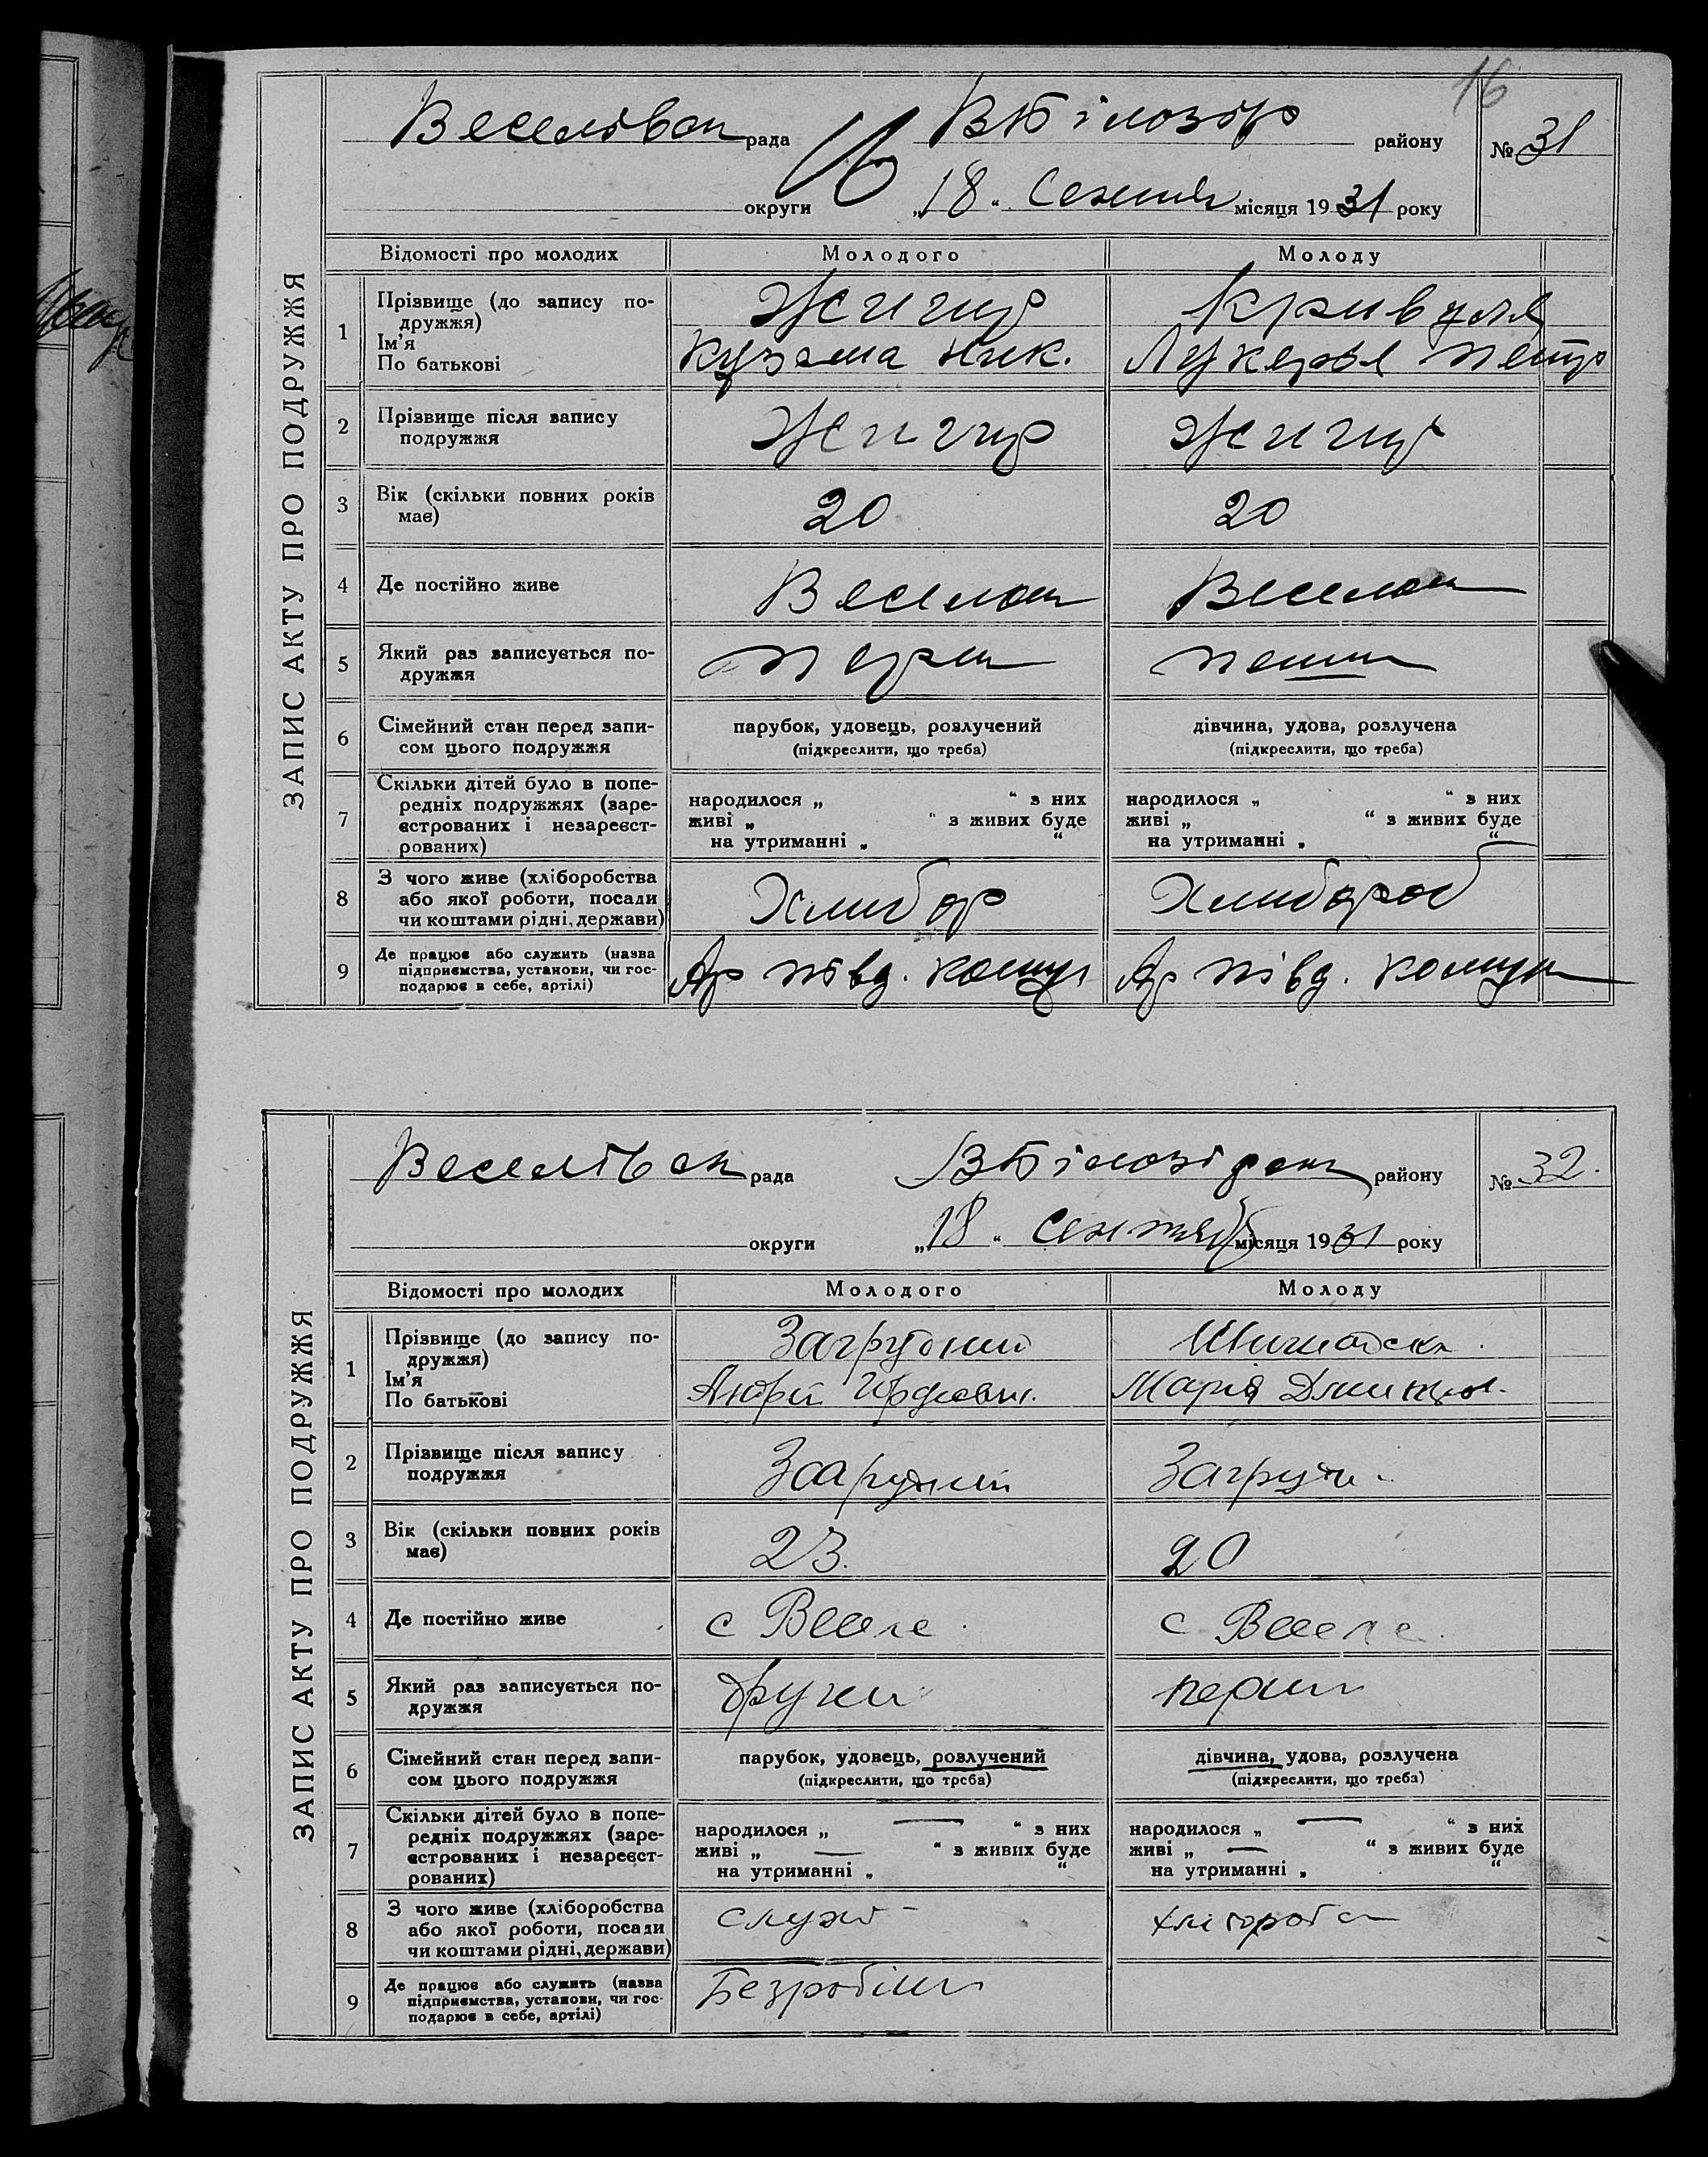 16
Веселівск рада
ВБілозір району
№ 31
16
округи
„18“ Сентяб місяця 1931 року
ЗАПИС АКТУ ПРО ПОДРУЖЖЯ
Відомості про молодих Молодого Молоду
1 Прізвище (до запису по-
дружжя)
Ім'я
По батькові
Жигир
Кузьма Ник.
Кривуля
Лукерья Петр
2 Прізвище після запису
подружжя
Жигир
Жигир
3 Вік (скільки повних років
має)
20
20
4 Де постійно живе
Веселоє
Веселоє
5 Який раз записується по-
дружжя
перш
6 Сімейний стан перед запи-
сом цього подружжя
парубок, удовець, розлучений
(підкреслити, що треба)
дівчина, удова, розлучена
(підкреслити, що треба)
7 Скільки дітей було в попе-
редніх подружжях (заре-
єстрованих і незареєст-
рованих)
народилося „ “ з них
живі „ “ з живих буде
на утриманні „ “
народилося „ “ з них
живі „ “ з живих буде
на утриманні „ “
8 З чого живе (хліборобства
або якої роботи, посади
чи коштами рідні, держави)
Хлибор
Хлибороб
9 Де працює або служить (назва
підприємства, установи, чи гос-
подарює в себе, артілі)
Ар півд. комун
Ар півд. комун
Веселівск рада
ВБілозірськ району
№ 32.
округи
„18“ Сентяб місяця 1931 року
ЗАПИС АКТУ ПРО ПОДРУЖЖЯ
Відомості про молодих Молодого Молоду
1 Прізвище (до запису по-
дружжя)
Ім'я
По батькові
Загрудний
Андрій
Марія Дмитро.
2 Прізвище після запису
подружжя
Загрудн
3 Вік (скільки повних років
має)
23.
20
4 Де постійно живе
с Веселе
с Веселе
5 Який раз записується по-
дружжя
други
перши
6 Сімейний стан перед запи-
сом цього подружжя
парубок, удовець, розлучений
(підкреслити, що треба)
дівчина, удова, розлучена
(підкреслити, що треба)
7 Скільки дітей було в попе-
редніх подружжях (заре-
єстрованих і незареєст-
рованих)
народилося „ — “ з них
живі „ — “ з живих буде
на утриманні „ “
народилося „ — “ з них
живі „ — “ з живих буде
на утриманні „ “
8 З чого живе (хліборобства
або якої роботи, посади
чи коштами рідні, держави)
служб
хліборобс
9 Де працює або служить (назва
підприємства, установи, чи гос-
подарює в себе, артілі)
Безробітн